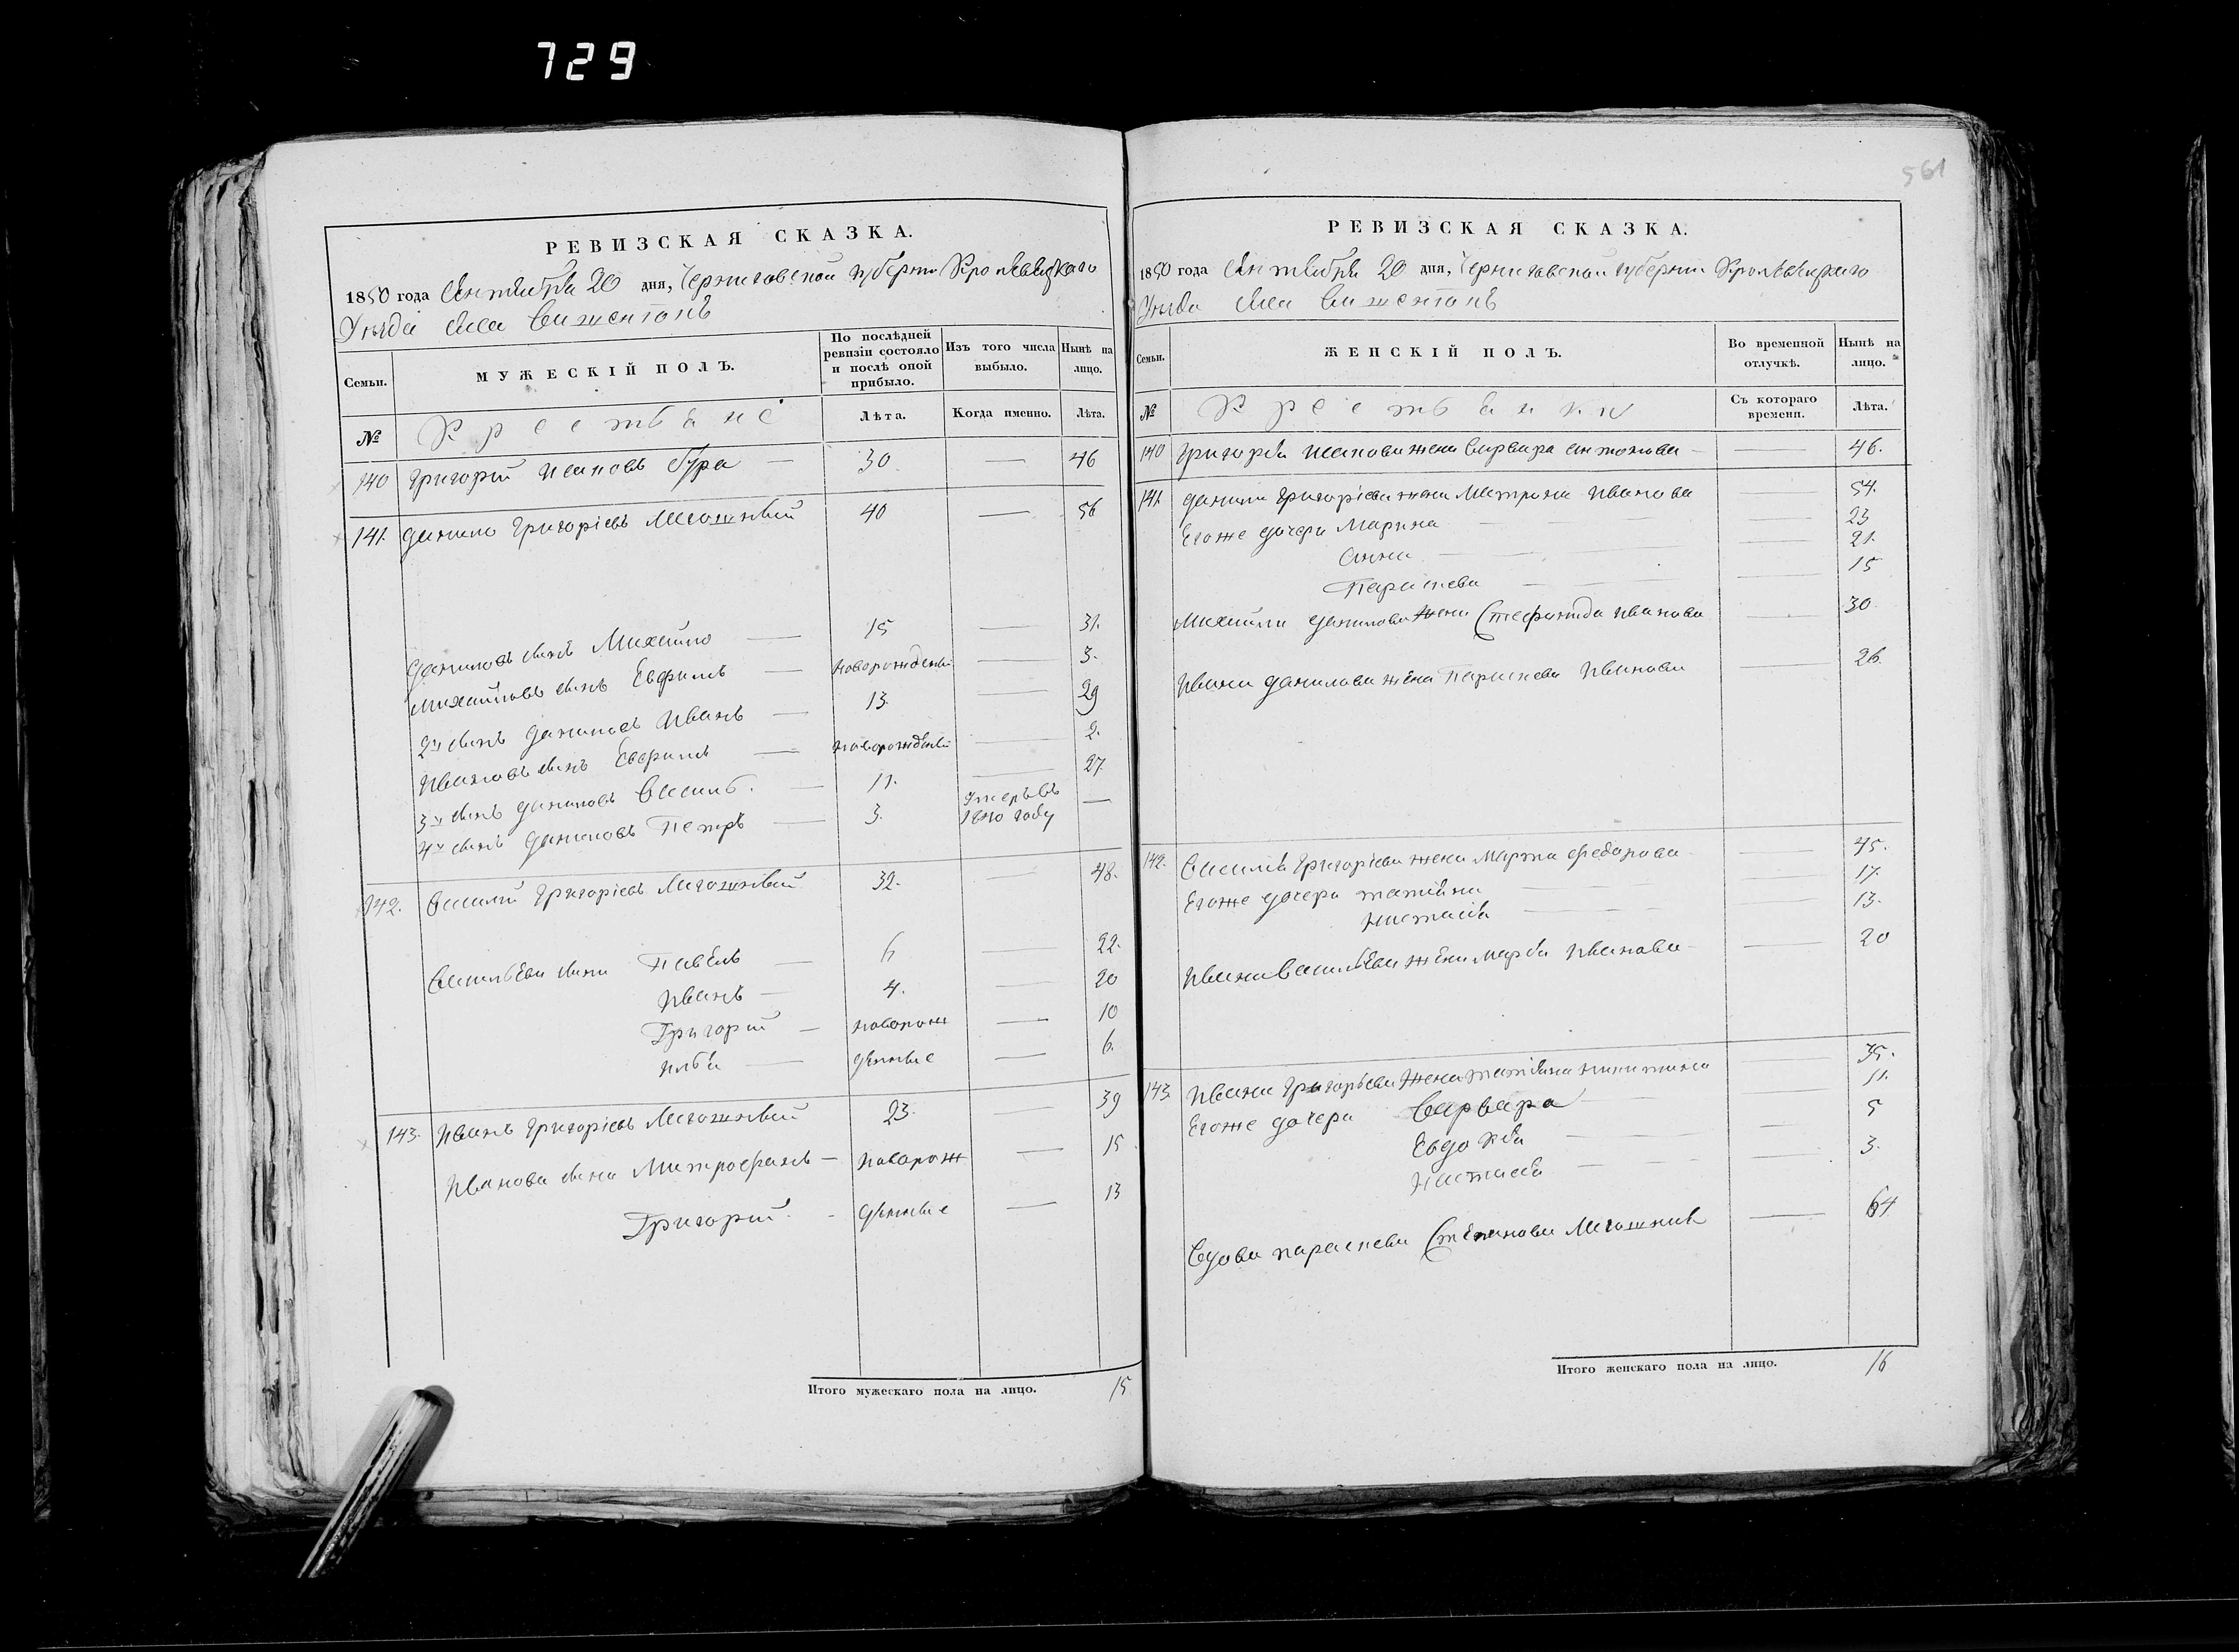 729
561
РЕВИЗСКАЯ СКАЗКА.
1850 года Сентября 20 дня, Черниговской губернии Кролевецкаго
Уезда села
СЕМЬИ. МУЖЕСКІЙ ПОЛЪ. По послѣдней ревизіи состояло и послѣ оной прибыло. Изъ того числа выбыло. Нынѣ на лицо.
№ Крестьяне Лѣта. Когда именно. Лѣта.
140 Григорій Бура — 30 — 46
141. Данило Григоріевъ 40 — 56
Даниловъ сынъ Михайло — 15 — 31.
Михайловъ сынъ Евфимъ — новорожденный — 3.
2й сынъ Даниловъ Иванъ — 13. — 29
Ивановъ сынъ Евфимъ — новорожденный — 2.
3й сынъ Даниловъ Василь. — 11. — 27.
4й сынъ Даниловъ Петръ — 3. Умеръ въ 1840 году —
142. Василий Григоріевъ 32. — 48.
Васильевы сыны Павелъ — 6 — 22.
Иванъ — 4. — 20
Григорий — новорож — 10
Илья — денные — 6.
143. Иванъ Григоріевъ 23. — 39
Ивановы сыны Митрофанъ — новорож — 15
Григорий. - денные — 13
Итого мужескаго пола на лицо. 15
РЕВИЗСКАЯ СКАЗКА.
1850 года Сентября 20 дня, Черниговской губернии Кролевецкаго
Уезда села
Семьи. ЖЕНСКІЙ ПОЛЪ. Во временной отлучкѣ. Нынѣ на лицо.
№ Крестьянки Съ котораго времени. Лѣта.
140 Григорія жена Варвара Антонова — — 46.
141. Данила Григоріева жена Матрона Иванова — 54.
Его же дочери Марина — — — 23
Анна — — — 21.
Параскева — — — 15
Михайла Данилова жена Стефанида Иванова — 30
Ивана Данилова жена Параскева Иванова — 26.
142. Василія Григоріева жена Марфа Федорова — 45.
Его же дочери Татьяна — — 17.
Настасья — — 13.
Ивана Васильева жена Марья Иванова — — 20
143. Ивана Григорьева жена Татьяна Никитина — 35.
Его же дочери Варвара — — 11.
Евдокія — — — 5
Настасья — — — 3.
Вдова Параскева Степанова — 64
Итого женскаго пола на лицо. 16